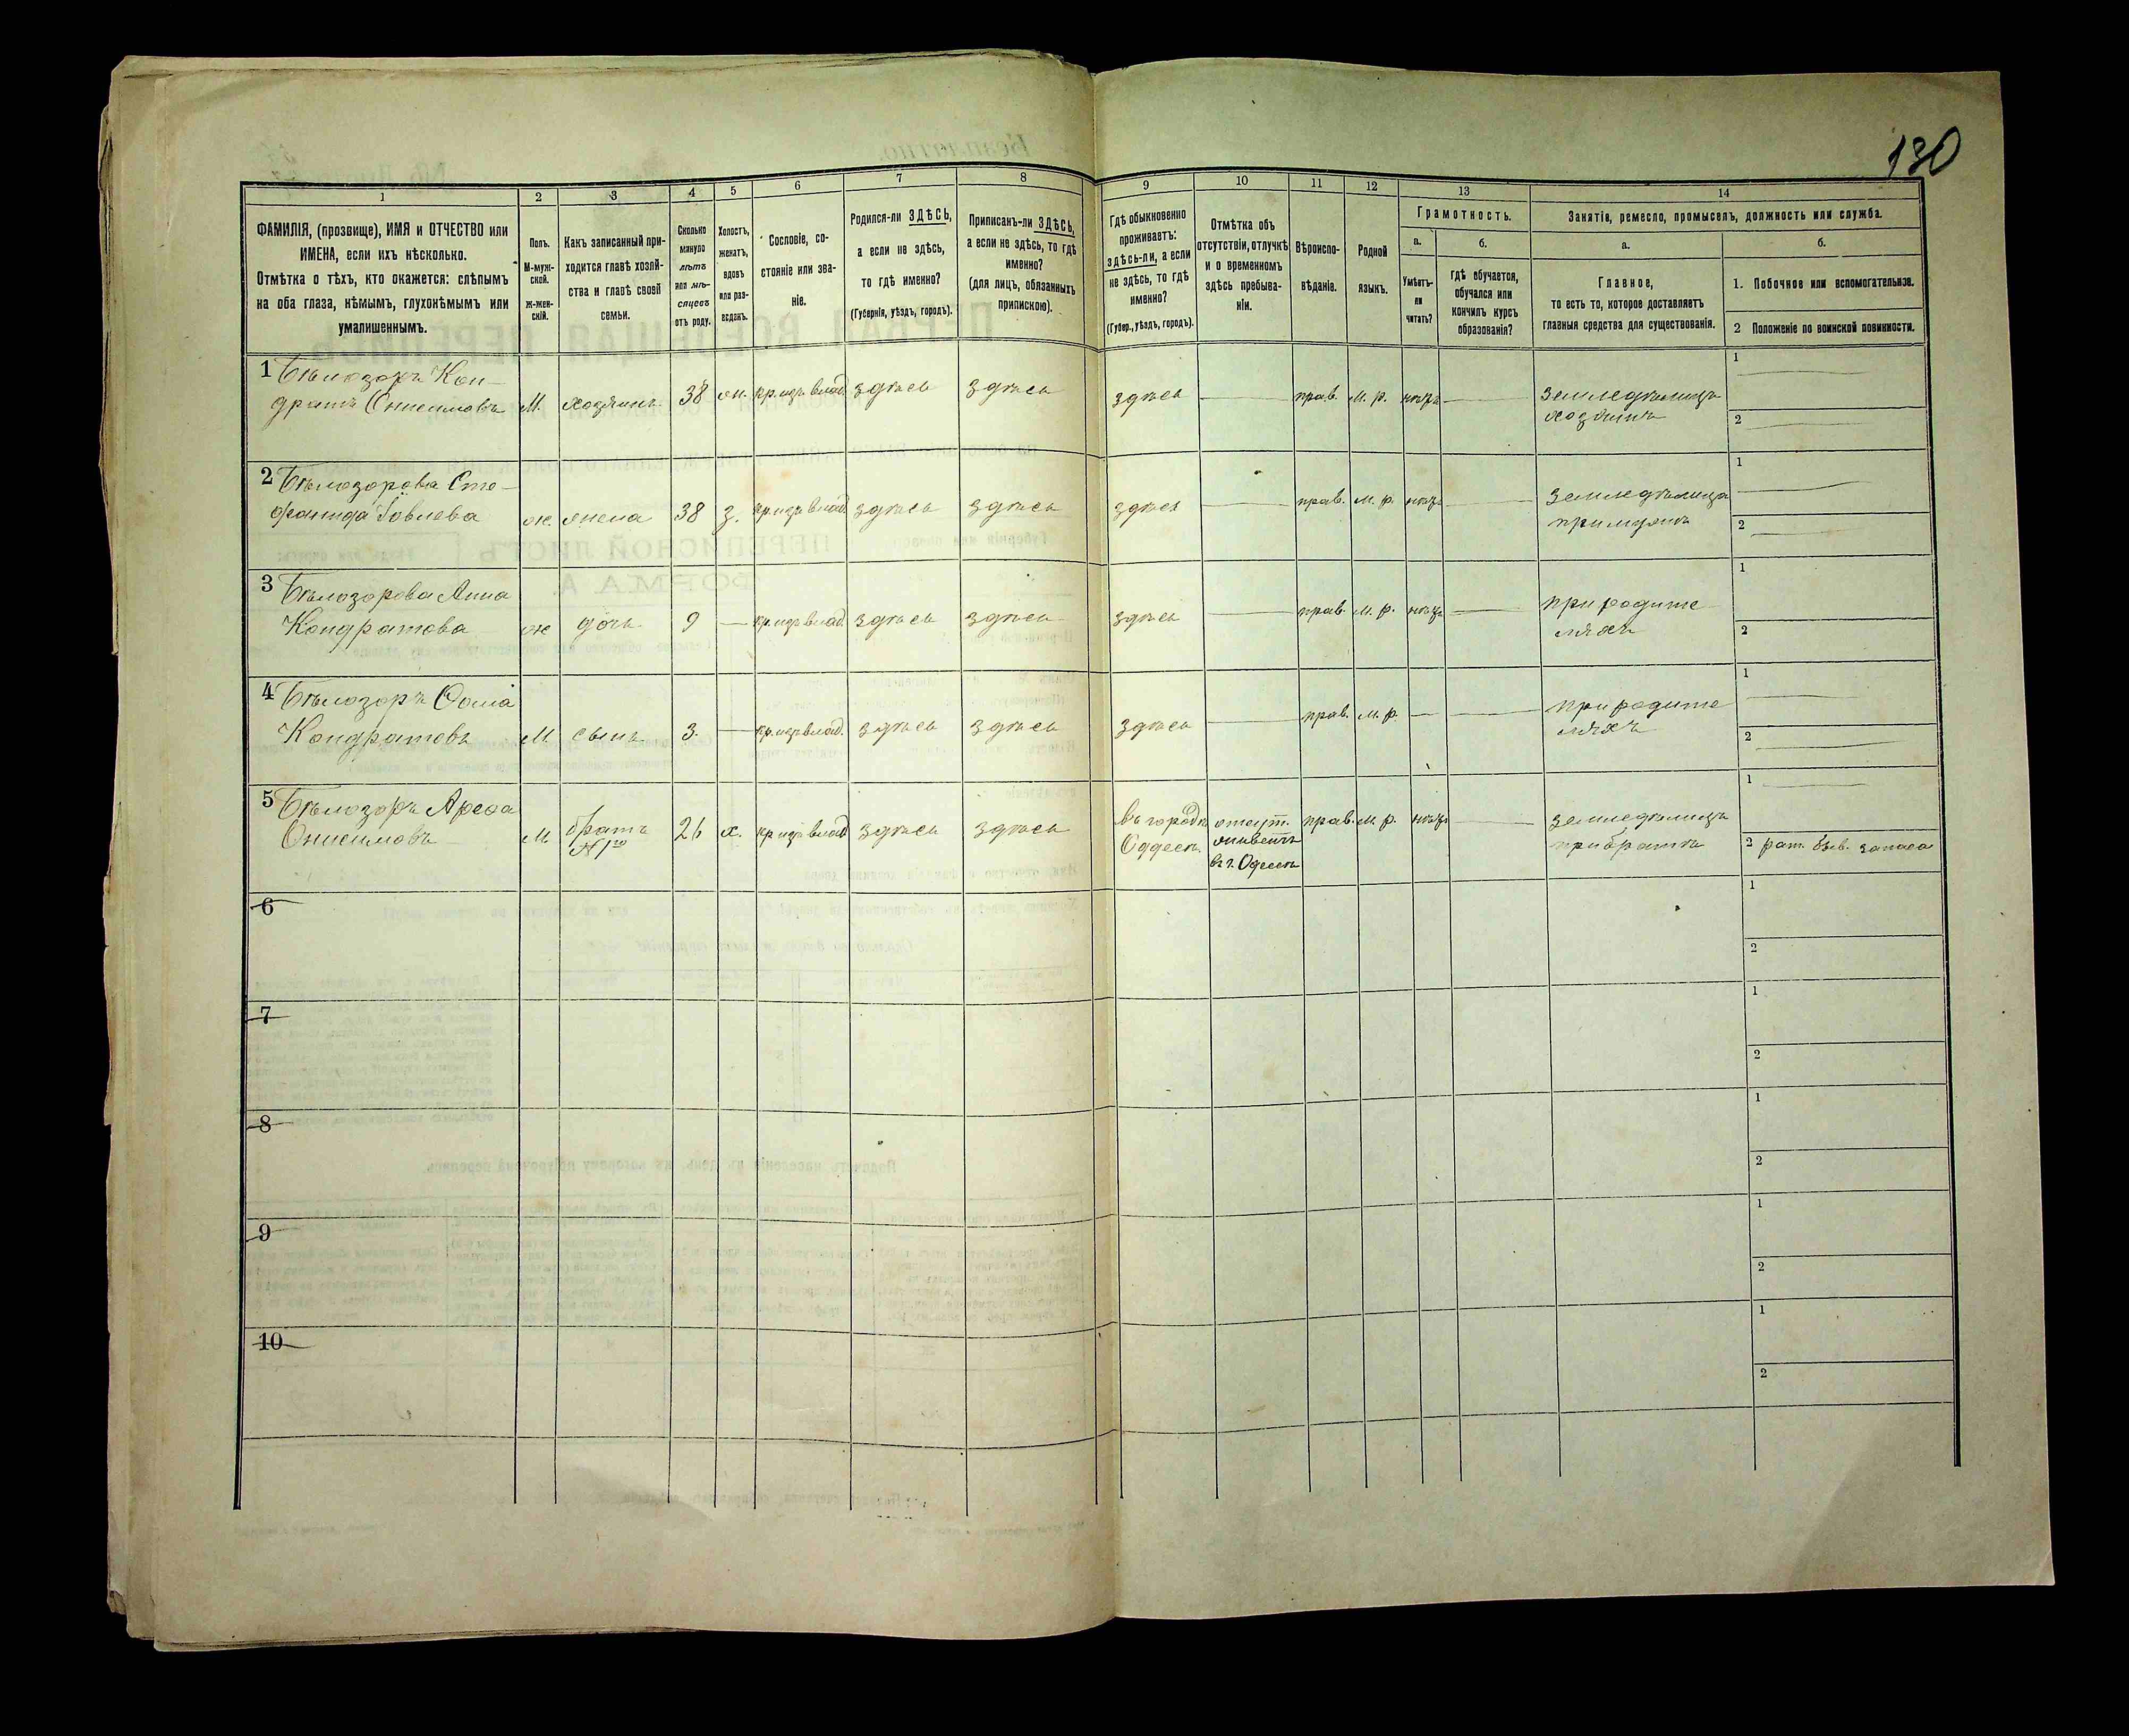 130
1
2
3
4
5
6
7
8
9
10
11
12
13
14
ФАМИЛІЯ, (прозвище), ИМЯ и ОТЧЕСТВО или
ИМЕНА, если ихъ нѣсколько.
Отмѣтка о тѣхъ, кто окажется: слѣпымъ
на оба глаза, нѣмымъ, глухонѣмымъ или
умалишеннымъ.
Полъ.
М-муж-
ской.
ж-жен-
скій.
Какъ записанный при-
ходится главѣ хозяй-
ства и главѣ своей
семьи.
Сколько
минуло
лѣтъ
или мѣ-
сяцевъ
отъ роду.
Холостъ,
женатъ,
вдовъ
или раз-
веденъ.
Сословіе, со-
стояніе или зва-
ніе.
Родился-ли ЗДѢСЬ,
а если не здѣсь,
то гдѣ именно?
(Губернія, уѣздъ, городъ).
Приписанъ-ли ЗДѢСЬ,
а если не здѣсь, то гдѣ
именно?
(для лицъ, обязанныхъ
припискою).
Гдѣ обыкновенно
проживаетъ:
здѣсь-ли, а если
не здѣсь, то гдѣ
именно?
(Губер., уѣздъ, городъ).
Отмѣтка объ
отсутствіи, отлучкѣ
и о временномъ
здѣсь пребыва-
ніи.
Вѣроиспо-
вѣданіе.
Родной
языкъ.
Грамотность.
а.
Умѣетъ-
ли
читать?
б.
гдѣ обучается,
обучался или
кончилъ курсъ
образованія?
Занятіе, ремесло, промыселъ, должность или служба.
а.
Главное,
то есть то, которое доставляетъ
главныя средства для существованія.
б.
1. Побочное или вспомогательное.
2 Положеніе по воинской повинности.
1 Бѣлозоръ Кон-
дратъ Онисимовъ М. хозяинъ 38 жн. кр. изъ влад. здѣсь здѣсь здѣсь — прав. м. р. нѣтъ — земледѣлецъ
хозяинъ
1 —
2 —
2 Бѣлозорова Сте-
фанида Іовлева ж. жена 38 з. кр. изъ влад. здѣсь здѣсь здѣсь — прав. м. р. нѣтъ — земледѣлица
при мужѣ
1 —
2 —
3 Бѣлозорова Анна
Кондратова ж дочь 9 — кр. изъ влад. здѣсь здѣсь здѣсь — прав. м. р. нѣтъ — при родите
ляхъ
1 —
2 —
4 Бѣлозоръ Ѳома
Кондратовъ М. сынъ 3 — кр. изъ влад. здѣсь здѣсь здѣсь — прав. м. р. — — при родите
ляхъ
1 —
2 —
5 Бѣлозоръ Арефа
Онисимовъ М. братъ
№ 1го
26 х. кр. изъ влад. здѣсь здѣсь
въ городѣ
Одессѣ.
отсут.
живетъ
въ г. Одессѣ
прав. м. р. нѣтъ — земледѣлецъ
при братѣ
1 —
2 рат. быв. запаса
6
1
2
7
1
2
8
1
2
9
1
2
10
1
2